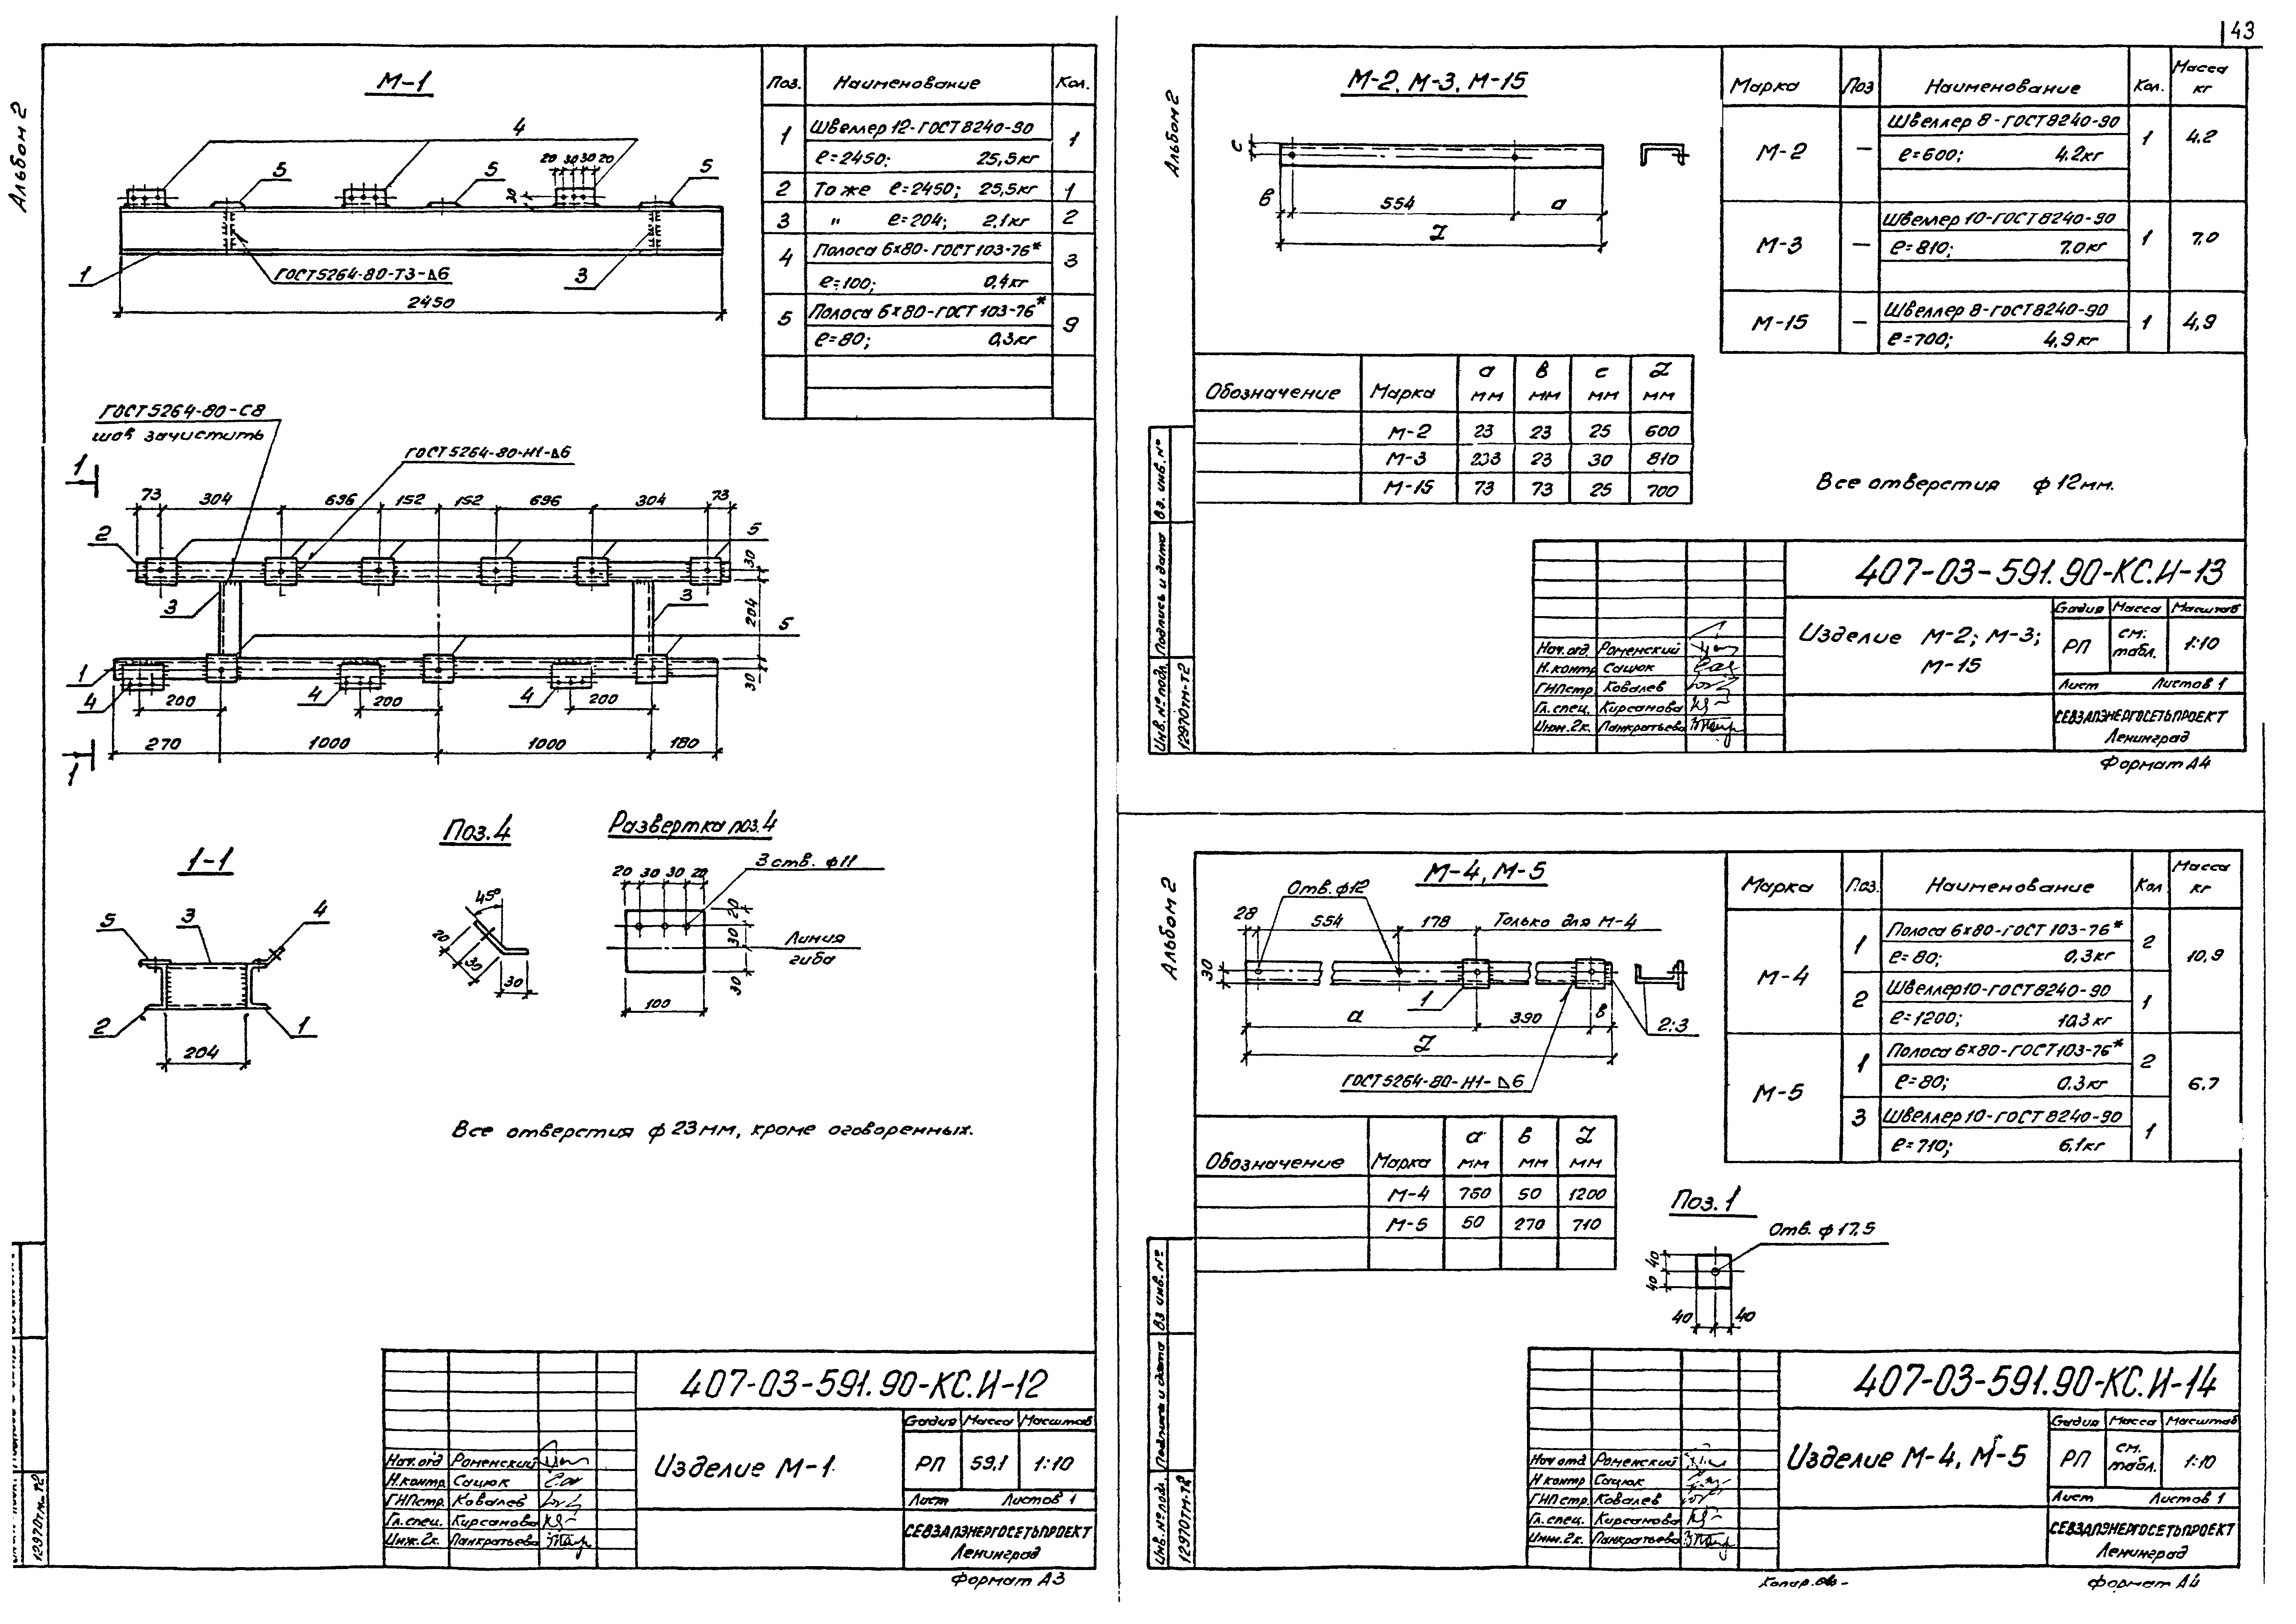 43
Альбом 2
М-1
4
5
5
5
20 30 30 20
30
1
ГОСТ 5264-80-Т3-⊿6
3
2450
Поз. Наименование Кол.
1 Швеллер 12-ГОСТ 8240-90 1
ℓ=2450; 25,5кг
2 То же ℓ=2450; 25,5кг 1
3 " ℓ=204; 2,1кг 2
4 Полоса 6×80-ГОСТ 103-76* 3
ℓ=100; 0,4кг
5 Полоса 6×80-ГОСТ 103-76* 9
ℓ=80; 0,3кг
ГОСТ 5264-80-С8
шов зачистить
ГОСТ 5264-80-Н1-⊿6
1
73 304 696 152 152 696 304 73
2
5
30
3
3
204
5
1
30
4 200 4 200 4 200
270 1000 1000 180
1
1-1
5 3 4
2 1
204
Поз.4
45°
20
30
30
Развертка поз.4
3 отв. ф11
20 30 30 20
20
30
30
Линия
гиба
100
Все отверстия ф 23мм, кроме оговоренных.
12970тм-т2
407-03-591.90-КС.И-12
Изделие М-1
Стадия Масса Масштаб
РП 59,1 1:10
Лист Листов 1
Нач.отд Роменский
Н.контр Сацюк
ГИПстр. Ковалев
Гл.спец. Кирсанова
Инж.2к. Панкратьева
СЕВЗАПЭНЕРГОСЕТЬПРОЕКТ
Ленинград
Формат А3
Альбом 2
М-2, М-3, М-15
с
в 554 а
L
Марка Поз Наименование Кол. Масса кг
М-2 — Швеллер 8-ГОСТ 8240-90 1 4,2
ℓ=600; 4,2кг
М-3 — Швеллер 10-ГОСТ 8240-90 1 7,0
ℓ=810; 7,0кг
М-15 — Швеллер 8-ГОСТ 8240-90 1 4,9
ℓ=700; 4,9кг
Обозначение Марка а мм в мм с мм L мм
М-2 23 23 25 600
М-3 233 23 30 810
М-15 73 73 25 700
Все отверстия ф 12мм.
Инв.№ подл. Подпись и дата Вз. инв. №
12970тм-т2
407-03-591.90-КС.И-13
Изделие М-2; М-3;
М-15
Стадия Масса Масштаб
РП см. табл. 1:10
Лист Листов 1
Нач.отд. Роменский
Н.контр Сацюк
ГИПстр. Ковалев
Гл.спец. Кирсанова
Инж.2к. Панкратьева
СЕВЗАПЭНЕРГОСЕТЬПРОЕКТ
Ленинград
Формат А4
Альбом 2
М-4, М-5
Отв. ф12
28 554 178 Только для М-4
30
1
а 390 в
2;3
L
ГОСТ 5264-80-Н1-⊿6
Марка Поз. Наименование Кол Масса кг
М-4 1 Полоса 6×80-ГОСТ 103-76* 2 10,9
ℓ=80; 0,3кг
2 Швеллер 10-ГОСТ 8240-90 1
ℓ=1200; 10,3кг
М-5 1 Полоса 6×80-ГОСТ 103-76* 2 6,7
ℓ=80; 0,3кг
3 Швеллер 10-ГОСТ 8240-90 1
ℓ=710; 6,1кг
Обозначение Марка а мм в мм L мм
М-4 760 50 1200
М-5 50 270 710
Поз.1
Отв. ф 17,5
40
40
40 40
Инв.№ подл. Подпись и дата Вз инв. №
12970тм-т2
407-03-591.90-КС.И-14
Изделие М-4, М-5
Стадия Масса Масштаб
РП см. табл. 1:10
Лист Листов 1
Нач отд Роменский
Н контр Сацюк
ГИПстр. Ковалев
Гл.спец. Кирсанова
Инж.2к. Панкратьева
СЕВЗАПЭНЕРГОСЕТЬПРОЕКТ
Ленинград
Копир.
Формат А4